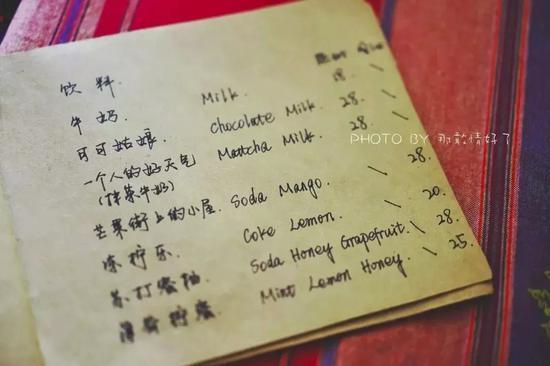 饮料.
牛奶. Milk. 18. \
可可姑娘. Chocolate Milk. 28. \
一个人的好天气 Matcha Milk. 28. \
(抹茶牛奶)
芒果街上的小屋. Soda Mango. \ 28.
冻柠乐. Coke Lemon. \ 20.
苏打蜜柚 Soda Honey Grapefruit. \ 28.
薄荷柠蜜 Mint Lemon Honey. \ 25.
PHOTO BY 那敢情好了